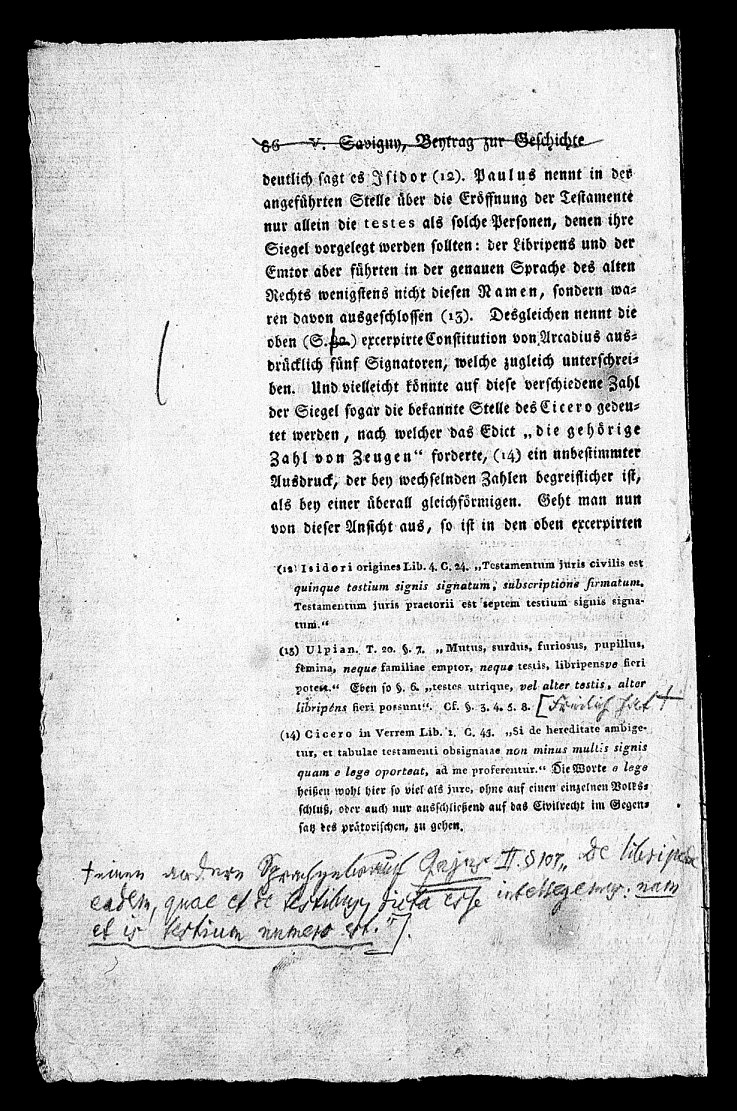 86 V. Savigny, Beytrag zur Geschichte
deutlich sagt es Isidor (12). Paulus nennt in der
angeführten Stelle über die Eröffnung der Testamente
nur allein die testes als solche Personen, denen ihre
Siegel vorgelegt werden sollten: der Libripens und der
Emtor aber führten in der genauen Sprache des alten
Rechts wenigstens nicht diesen Namen, sondern wa-
ren davon ausgeschlossen (13). Desgleichen nennt die
oben (S. ) excerpirte Constitution von Arcadius aus-
drücklich fünf Signatoren, welche zugleich unterschrei-
ben. Und vielleicht könnte auf diese verschiedene Zahl
der Siegel sogar die bekannte Stelle des Cicero gedeu-
tet werden, nach welcher das Edict „die gehörige
Zahl von Zeugen“ forderte, (14) ein unbestimmter
Ausdruck, der bey wechselnden Zahlen begreiflicher ist,
als bey einer überall gleichförmigen. Geht man nun
von dieser Ansicht aus, so ist in den oben excerpirten
(12) Isidori origines Lib. 4. C. 24. „Testamentum juris civilis est
quinque testium signis signatum, subscriptione firmatum.
Testamentum juris praetorii est septem testium signis signa-
tum.“
(13) Ulpian. T. 20. §. 7. „Mutus, surdus, furiosus, pupillus,
femina, neque familiae emptor, neque testis, libripensve fieri
potest.“ Eben so §. 6. „testes utrique, vel alter testis, alter
libripens fieri possunt“. Cf. §. 3. 4. 5. 8. [Freilich hat †
(14) Cicero in Verrem Lib. 1. C. 45. „Si de hereditate ambige-
tur, et tabulae testamenti obsignatae non minus multis signis
quam e lege oporteat, ad me proferentur.“ Die Worte e lege
heißen wohl hier so viel als jure, ohne auf einen einzelnen Volks-
schluß, oder auch nur ausschließend auf das Civilrecht im Gegen-
satz des prätorischen, zu gehen.
† einen andern Sprachgebrauch Gajus II. § 107 „De libripende
eadem, quae et de testibus, dicta esse intellegemus: nam
et is testium numero est.“].